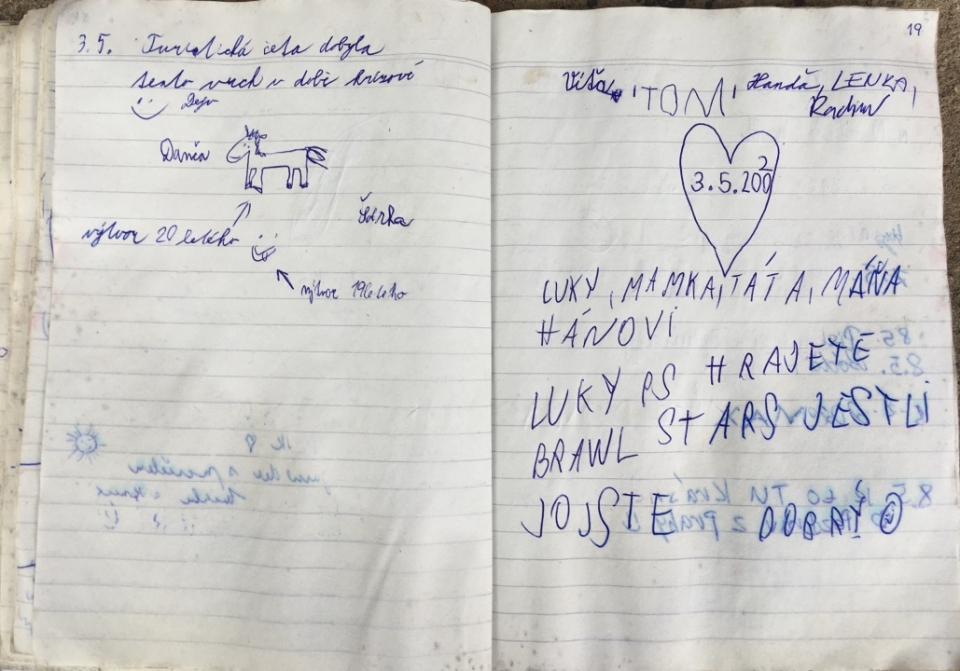 3.5. Turistická četa dobyla
tento vrch v době krizové
Dejv
Danča
Šárka
výtvor 20 letého
výtvor 19ti letého
19
Víťa, TOM, Handa, LENKA,
Radim
3.5.2002
LUKY, MAMKA, TÁTA, MÁŇA
HÁNOVI
LUKY PS HRAJETE
BRAWL STARS JESTLI
JO JSTE DOBRÝ